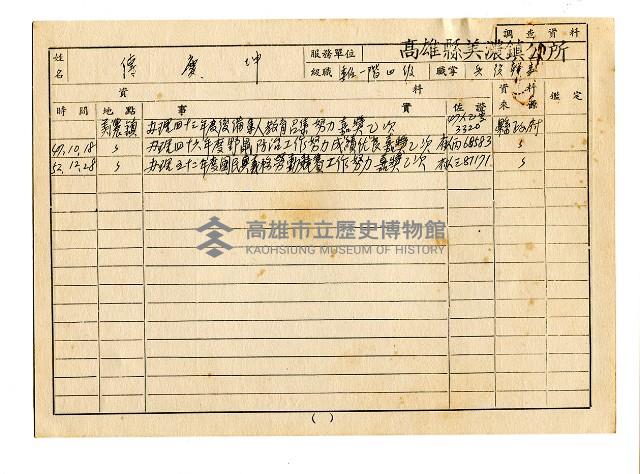 調查資料
姓名 傅慶坤 服務單位 高雄縣美濃鎮公所
級職 一階四級 職掌 兵役
資料 資料來源 鑑定
時間 地點 事實 佐證
美濃鎮 办理四十三年度後備軍人教育召集努力嘉獎乙次 3320 縣政府
47.10.18 〃 办理四十六年度野鼠防治工作努力成績优良嘉獎乙次 68583 〃
52.12.28 〃 办理五十二年度國民義務勞動競賽工作努力嘉獎乙次 87171 〃
高雄市立歷史博物館
KAOHSIUNG MUSEUM OF HISTORY
( )